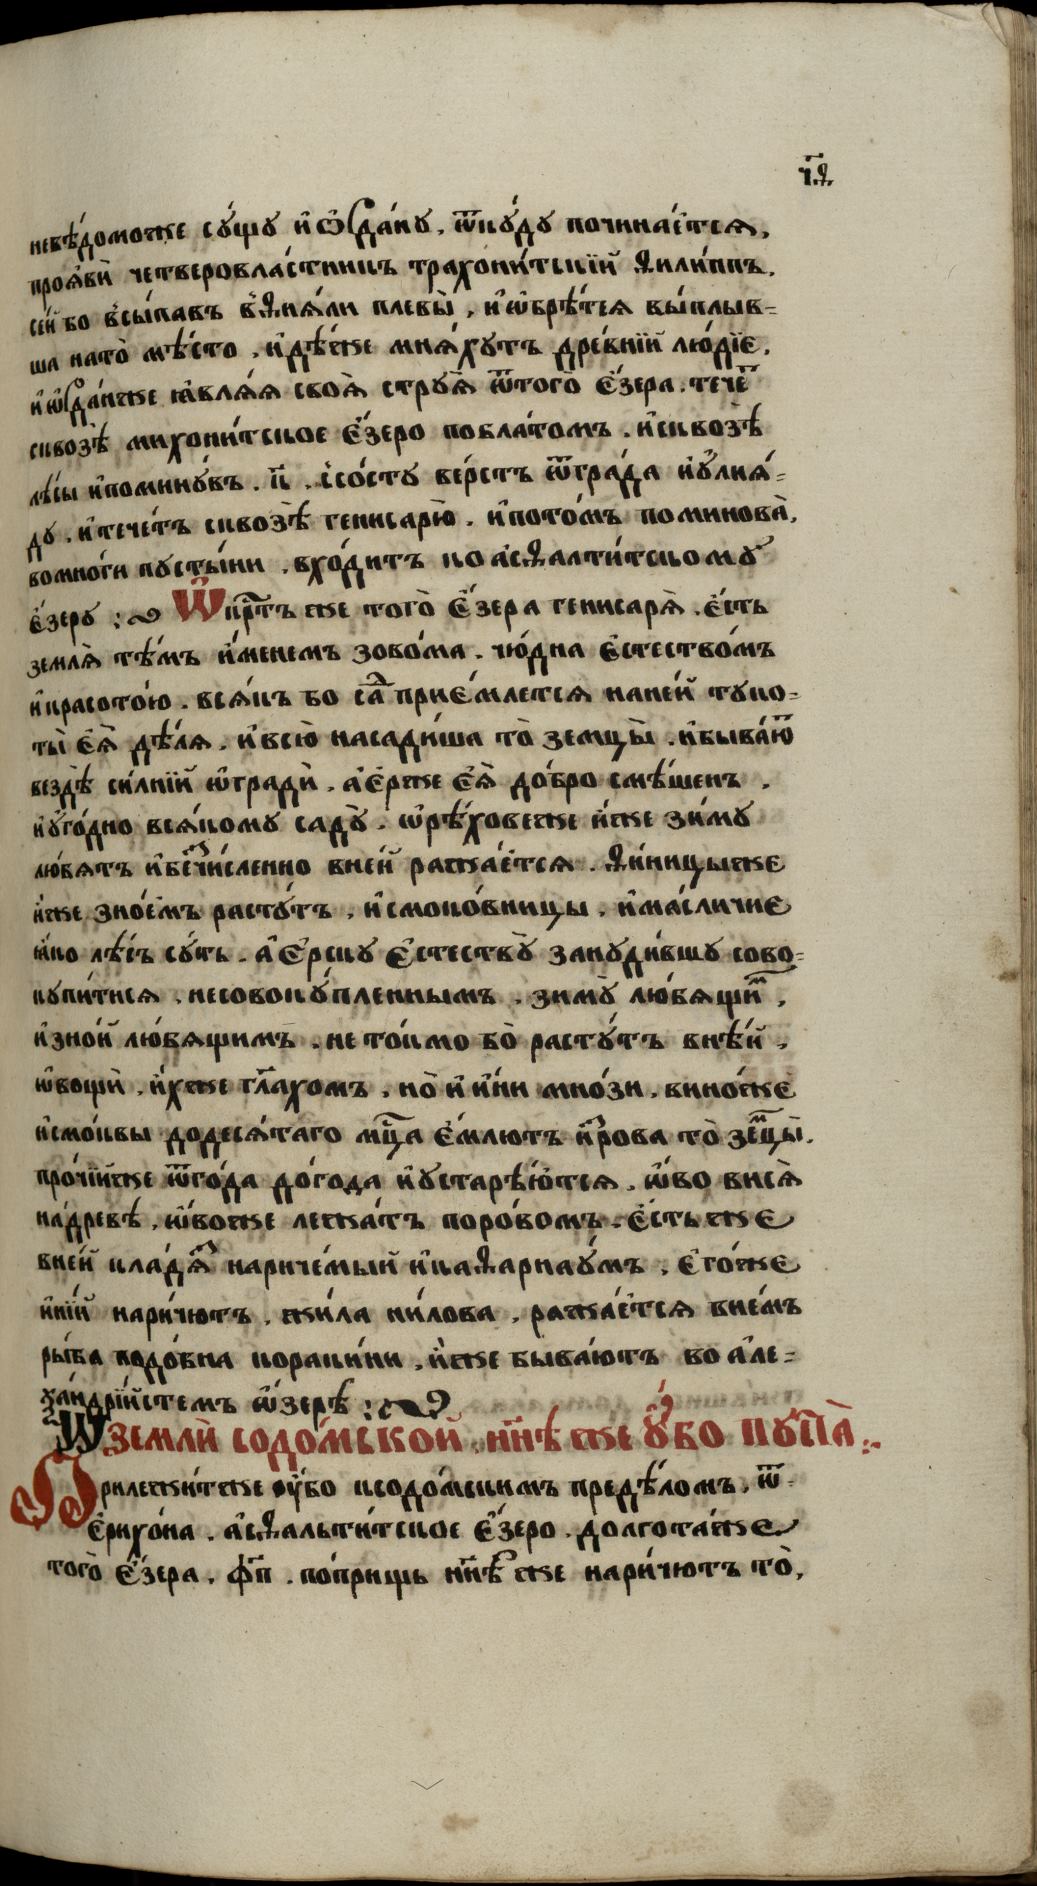 ч҃ѳ
невѣ́доможе сꙋ́щꙋ и҆ ѻ҆рда́нꙋ, ѿкꙋ́дꙋ починае́тсѧ,
проѧ́ви четверовла́стникъ трахони́тскїй Ѳили́ппъ.
се́й бо всы́павъ в ѳиѧ́ли плевы̀, и҆ ѡ҆брѣ́тсѧ вы́плыв-
ша на то̀ мѣ́сто, и҆дѣ́же мнѧ́хꙋтъ дре́внїй лю́дїе,
и҆ ѡ҆рда́нже ꙗ҆влѧ́ѧ своѧ̀ стрꙋѧ̀ ѿ того̀ є҆́зера. тече́т
сквозѣ̀ михони́тское є҆́зеро по бла́томъ. и҆ сквозѣ̀
лѣ́сы и҆ поминꙋ́въ. к҃. и҆ со́стꙋ ве́рстъ ѿ гра́да и҆ꙋлиѧ́-
дꙋ. и҆ тече́тъ сквозѣ̀ генисарїю̀. и҆ пото́мъ поминова̀,
во мно́ги пꙋсты́ни. вхо́дитъ ко а҆сѳалти́тскомꙋ
є҆́зерꙋ : Ѡ҆кр҃тъ же того̀ є҆́зера генисарѧ̀. є҆́сть
землѧ̀ тѣ́мъ и҆́менемъ зово́ма. чю́дна є҆стество́мъ
и҆ красото́ю. всѧ́къ бо са́д прие́млетсѧ на не́й тꙋко-
ты̀ є҆ѧ̀ дѣ́лѧ. и҆ всю̀ насади́ша то̀ земцы̀. и҆ быва́ют
вездѣ̀ си́лнїй ѡ҆градѝ. а҆е҆́рже є҆ѧ̀ до́бро смѣ́шенъ.
и҆ ꙋ҆го́дно всѧ́комꙋ садꙋ̀. ѡ҆рѣ́ховеже и҆́же зи́мꙋ
лю́бѧтъ и҆ бесчи́сленно в не́й ражае́тсѧ. Ѳи́ницыже
и҆́же зно́емъ растꙋ́тъ, и҆ смоко́вницы, и҆ ма́сличие
ꙗ҆́ко лѣ́съ сꙋ́ть. а҆е҆́рскꙋ є҆стествꙋ̀ занꙋди́вшꙋ сово-
кꙋпи́тисѧ. несовокꙋ́пленнымъ. зимꙋ̀ лю́бѧщим,
и҆ зно́й лю́бѧщимъ. не то́кмо бо̀ растꙋ́тъ в нѣ́й,
ѡ҆вощѝ, и҆́хже гл҃ахомъ, но̀ и҆ и҆́ни мно́зи. вино́же
и҆ смо́квы до десѧ́таго мц҃а є҆́млютъ и҆ кро́ва то̀ зе́мцы̀.
про́чїйже ѿ го́да до го́да и҆ ꙋстарѣ́ю́тсѧ. ѡ҆́во висѧ̀
на́ древѣ, ѡ҆́воже лежа́тъ под кро́вомъ. є҆́сть же
в не́й кладѧ́з нарече́мый и҆ каѳарнаꙋ́мъ, є҆го́же
и҆нїй нари́чютъ. жи́ла ни́лова, ражае́тсѧ в не́мъ
ры́ба подо́бна кораки́ни, и҆́же быва́ютъ во а҆ле-
ѯа́ндрїйстемъ ѡ҆́зерѣ :
Ѡ҆ землѝ содо́мьской, нн҃ѣ же ᲂу҆́бо пꙋста̀ .:.
Прилежи́тже ᲂу҆́бо к содо́мскимъ предѣ́ломъ, ѿ
є҆рихо́на. а҆сѳальти́тское є҆́зеро. долгота́же
того̀ є҆́зера. ф҃п. по́прищь нн҃ѣ же нари́чютъ то̀,